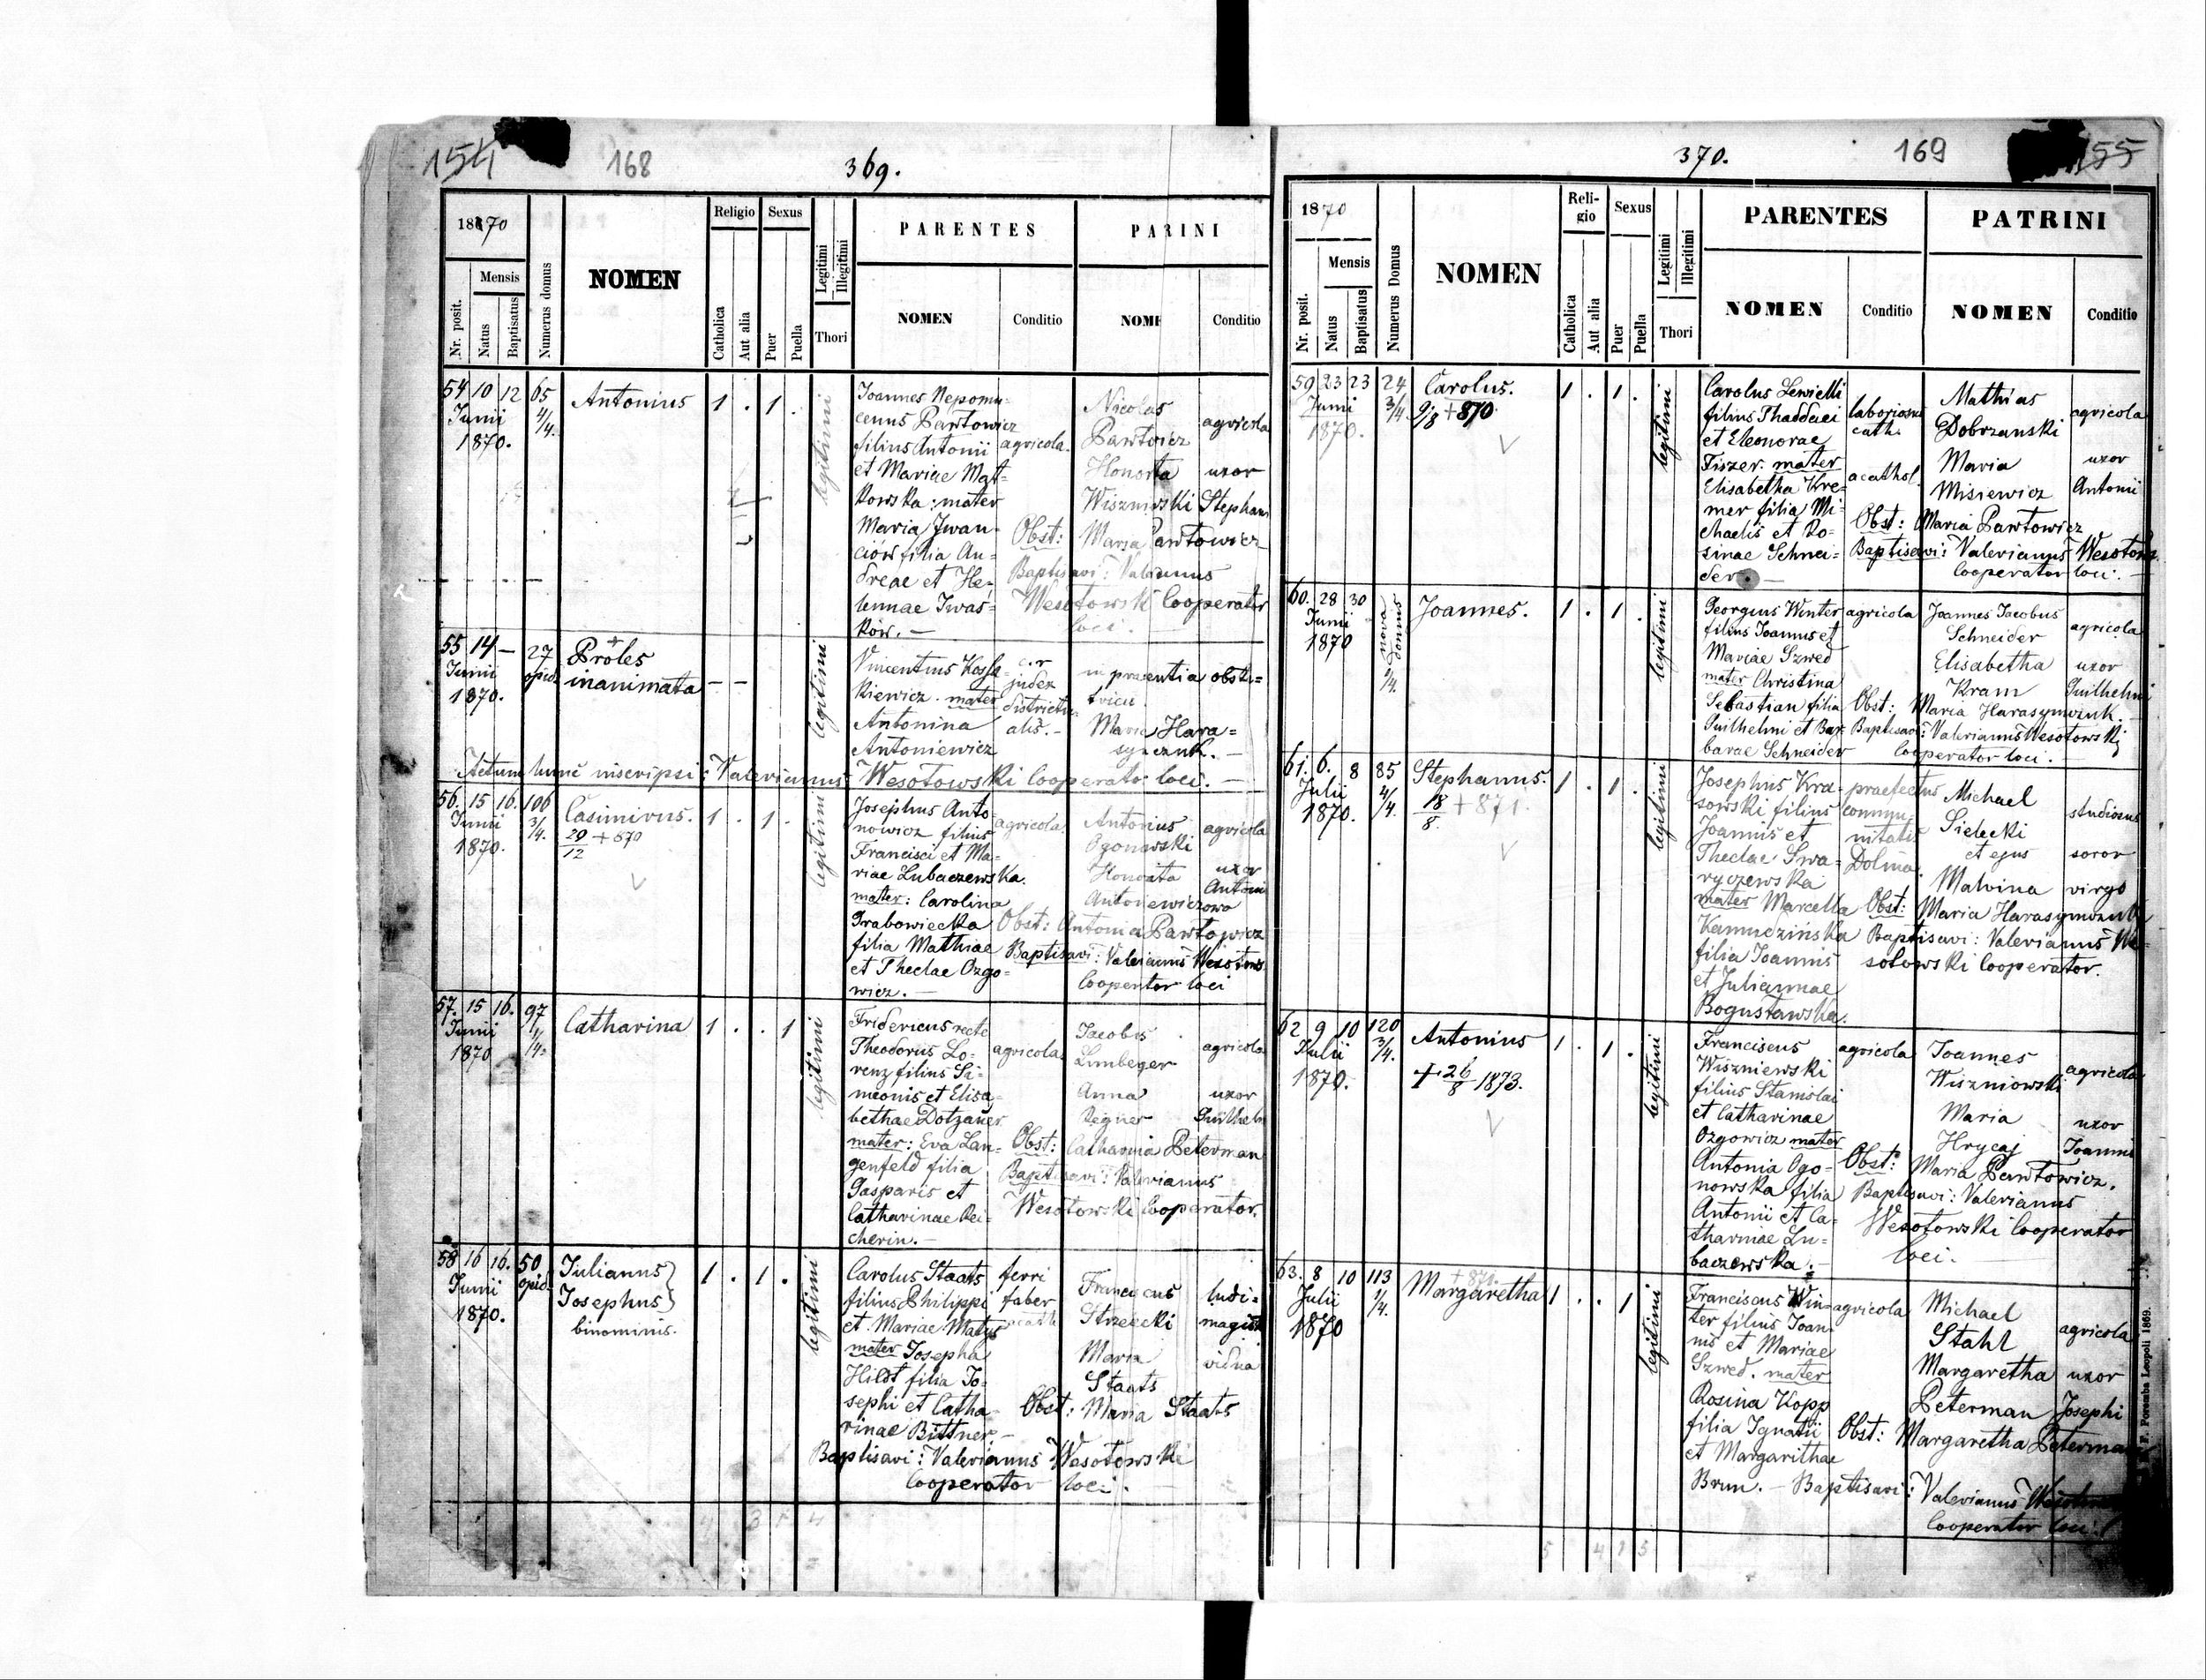 154
168
369.
1870
Religio
Sexus
Legitimi
Illegitimi
PARENTES
PARINI
Mensis
Nr. posit.
Natus
Baptisatus
Numerus domus
NOMEN
Catholica
Aut alia
Puer
Puella
Thori
NOMEN
Conditio
NOME
Conditio
54 10 12 65
Junii 4/4.
1870.
Antonius
1 . 1 .
legitimi
Joannes Nepomu-
cenus Pawłowicz
filius Antonii
et Mariae Mat-
kowska: mater
Maria Jwan-
ciów filia An-
dreae et He-
lennae Jwas-
ków. —
agricola.
Nicolas
Pawłowicz
Honorta
Wiszniewski
agricola
uxor
Stephani
Obst: Maria Pawłowicz
Baptisavi: Valerianus
Wesołowski Cooperator
loci. —
55 14 — 27
Junii opid.
1870.
+
Proles
inanimata
— —
legitimi
Vincentius Kossa-
kiewicz. mater
Antonina
Antoniewicz
c. r
judex
districtu-
alis. —
in praesentia obste-
tricis
Maria Hara-
symczuk. —
Actum hunc inscripsi: Valerianus Wesołowski Cooperator loci. —
56. 15 16. 106
Junii 3/4.
1870.
Casimirus.
29/12 + 870
1 . 1 .
legitimi
Josephus Anto-
nowicz filius
Francisci et Ma-
riae Lubaczewska.
mater: Carolina
Grabowiecka
filia Mathiae
et Theclae Ozgo-
wicz. —
agricola.
Antonius
Ogonowski
Honorata
Antoniewiczowa
agricola
uxor
Antoni
Obst: Antonia Pawłowicz
Baptisavi: Valerianus Wesołows-
Cooperator loci
57. 15 16. 97
Junii 1/4.
1870
Catharina
1 . . 1
legitimi
Fridericus recte
Theodorus Lo-
renz filius Si-
meonis et Elisa-
bethae Dotzauer
mater: Eva Lan-
genfeld filia
Gasparis et
Catharinae Rei-
cherin. —
agricola.
Jacobus
Limbeger
Anna
Regner
agricola
uxor
Guilhelm
Obst: Catharina Peterman
Baptisavi: Valerianus
Wesołowski Cooperator.
58 16 16. 50
Junii opid.
1870.
Julianus
Josephus
binominis.
1 . 1 .
legitimi
Carolus Staats
filius Philippi
et Mariae Matys
mater Josepha
Hildt filia Jo-
sephi et Catha-
rinae Bittner —
ferri
faber
Franciscus
Strzelecki
Maria
Staats
ludi-
magist
vidua
Obst: Maria Staats
Baptisavi: Valerianus Wesołowski
Cooperator loci. —
370.
169
155
1870
Reli-
gio
Sexus
Legitimi
Illegitimi
PARENTES
PATRINI
Mensis
Nr. posit.
Natus
Baptisatus
Numerus Domus
NOMEN
Catholica
Aut alia
Puer
Puella
Thori
NOMEN
Conditio
NOMEN
Conditio
59 23 23 24
Junii 3/4.
1870.
Carolus.
9/8 + 870
1 . 1 .
legitimi
Carolus Lewicki
filius Thaddaei
et Eleonorae
Fiszer. mater
Elisabetha Kre-
mer filia Mi-
chaelis et Ro-
sinae Schnei-
der. —
laboriosus
cath.
acathol.
Mathias
Dobrzanski
Maria
Misiewicz
agricola
uxor
Antonii
Obst: Maria Pawłowicz
Baptisavi: Valerianus Wesołows
Cooperator loci. —
60. 28 30 nova domus
Junii 1/4.
1870
Joannes.
1 . 1 .
legitimi
Georgius Winter
filius Joannis et
Mariae Szwed
mater Christina
Sebastian filia
Guilhelmi et Bar-
barae Schneider
agricola
Joannes Jacobus
Schneider
Elisabetha
Kram
agricola
uxor
Guilhelmi
Obst: Maria Harasymczuk. —
Baptisavi: Valerianus Wesołowski
Cooperator loci. —
61. 6. 8 85
Julii 4/4.
1870.
Stephanus.
18/8. + 871.
1 . 1 .
legitimi
Josephus Kra-
sowski filius
Joannis et
Theclae Swa-
ryczewska
mater Marcella
Kamudzinska
filia Joannis
et Juliannae
Bogusławska.
praefectus
commu-
nitatis
Dolina.
Michael
Sielecki
et ejus
Malvina
studiosus
soror
virgo
Obst: Maria Harasymczuk
Baptisavi: Valerianus We-
sołowski Cooperator.
62 9 10 120
Julii 3/4.
1870.
Antonius
+ 26/8 1873.
1 . 1 .
legitimi
Franciscus
Wiszniewski
filius Stanislai
et Catharinae
Ozgowicz mater
Antonia Ogo-
nowska filia
Antonii et Ca-
tharinae Lu-
baczewska. —
agricola
Joannes
Wiszniowski
Maria
Hrycaj
agricola
uxor
Joannis
Obst: Maria Pawłowicz.
Baptisavi: Valerianus
Wesołowski Cooperator
loci. —
63. 8 10 113
Julii 1/4.
1870
+ 871.
Margaretha
1 . . 1
legitimi
Franciscus Win-
ter filius Joan-
nis et Mariae
Szwed. mater
Rosina Kopp
filia Ignatii
et Margarithae
Brun. —
agricola
Michael
Stahl
Margaretha
Peterman
agricola
uxor
Josephi
Obst: Margaretha Peterman
Baptisavi: Valerianus
Cooperator loci.
F. Poremba Leopol. 1869.